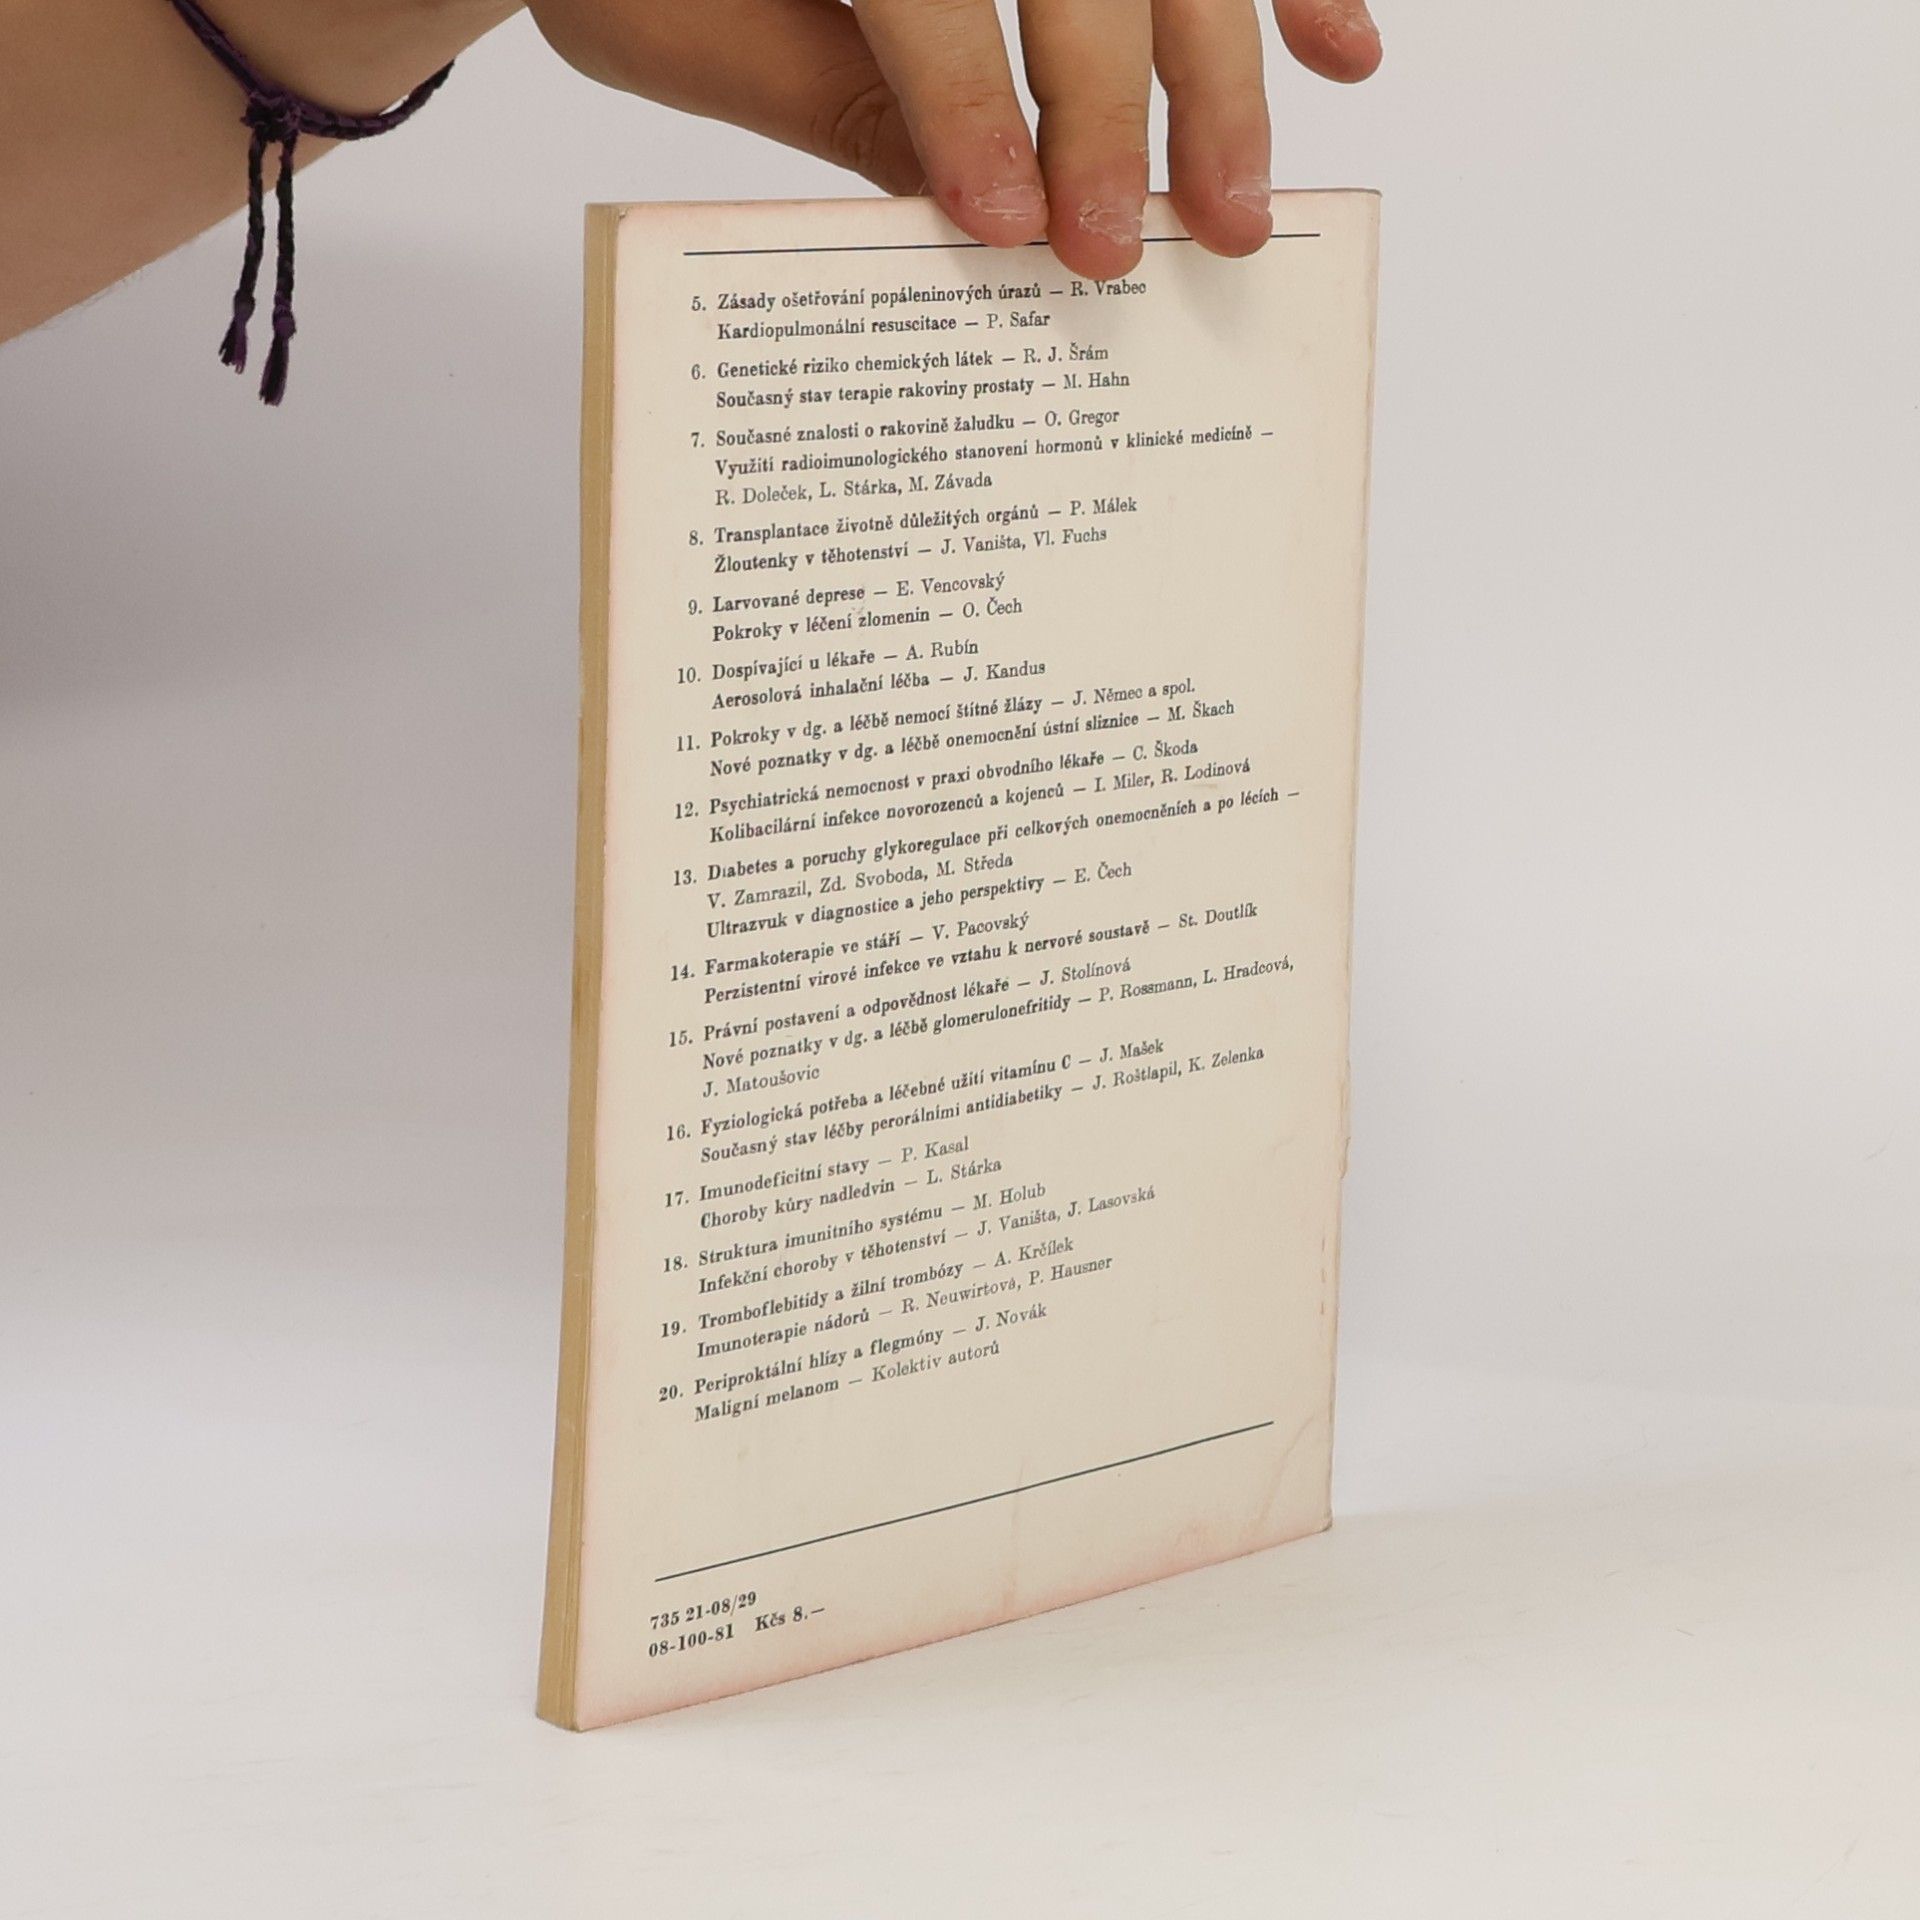 5. Zásady ošetřování popáleninových úrazů — R. Vrabec
Kardiopulmonální resuscitace — P. Safar
6. Genetické riziko chemických látek — R. J. Šrám
Současný stav terapie rakoviny prostaty — M. Hahn
7. Současné znalosti o rakovině žaludku — O. Gregor
Využití radioimunologického stanovení hormonů v klinické medicíně —
R. Doleček, L. Stárka, M. Závada
8. Transplantace životně důležitých orgánů — P. Málek
Žloutenky v těhotenství — J. Vaništa, Vl. Fuchs
9. Larvované deprese — E. Vencovský
Pokroky v léčení zlomenin — O. Čech
10. Dospívající u lékaře — A. Rubín
Aerosolová inhalační léčba — J. Kandus
11. Pokroky v dg. a léčbě nemocí štítné žlázy — J. Němec a spol.
Nové poznatky v dg. a léčbě onemocnění ústní sliznice — M. Škach
12. Psychiatrická nemocnost v praxi obvodního lékaře — C. Škoda
Kolibacilární infekce novorozenců a kojenců — I. Miler, R. Lodinová
13. Diabetes a poruchy glykoregulace při celkových onemocněních a po lécích —
V. Zamrazil, Zd. Svoboda, M. Středa
Ultrazvuk v diagnostice a jeho perspektivy — E. Čech
14. Farmakoterapie ve stáří — V. Pacovský
Perzistentní virové infekce ve vztahu k nervové soustavě — St. Doutlík
15. Právní postavení a odpovědnost lékaře — J. Stolínová
Nové poznatky v dg. a léčbě glomerulonefritidy — P. Rossmann, L. Hradcová,
J. Matoušovic
16. Fyziologická potřeba a léčebné užití vitamínu C — J. Mašek
Současný stav léčby perorálními antidiabetiky — J. Roštlapil, K. Zelenka
17. Imunodeficitní stavy — P. Kasal
Choroby kůry nadledvin — L. Stárka
18. Struktura imunitního systému — M. Holub
Infekční choroby v těhotenství — J. Vaništa, J. Lasovská
19. Tromboflebitidy a žilní trombózy — A. Krčílek
Imunoterapie nádorů — R. Neuwirtová, P. Hausner
20. Periproktální hlízy a flegmóny — J. Novák
Maligní melanom — Kolektiv autorů
735 21-08/29
08-100-81 Kčs 8.—